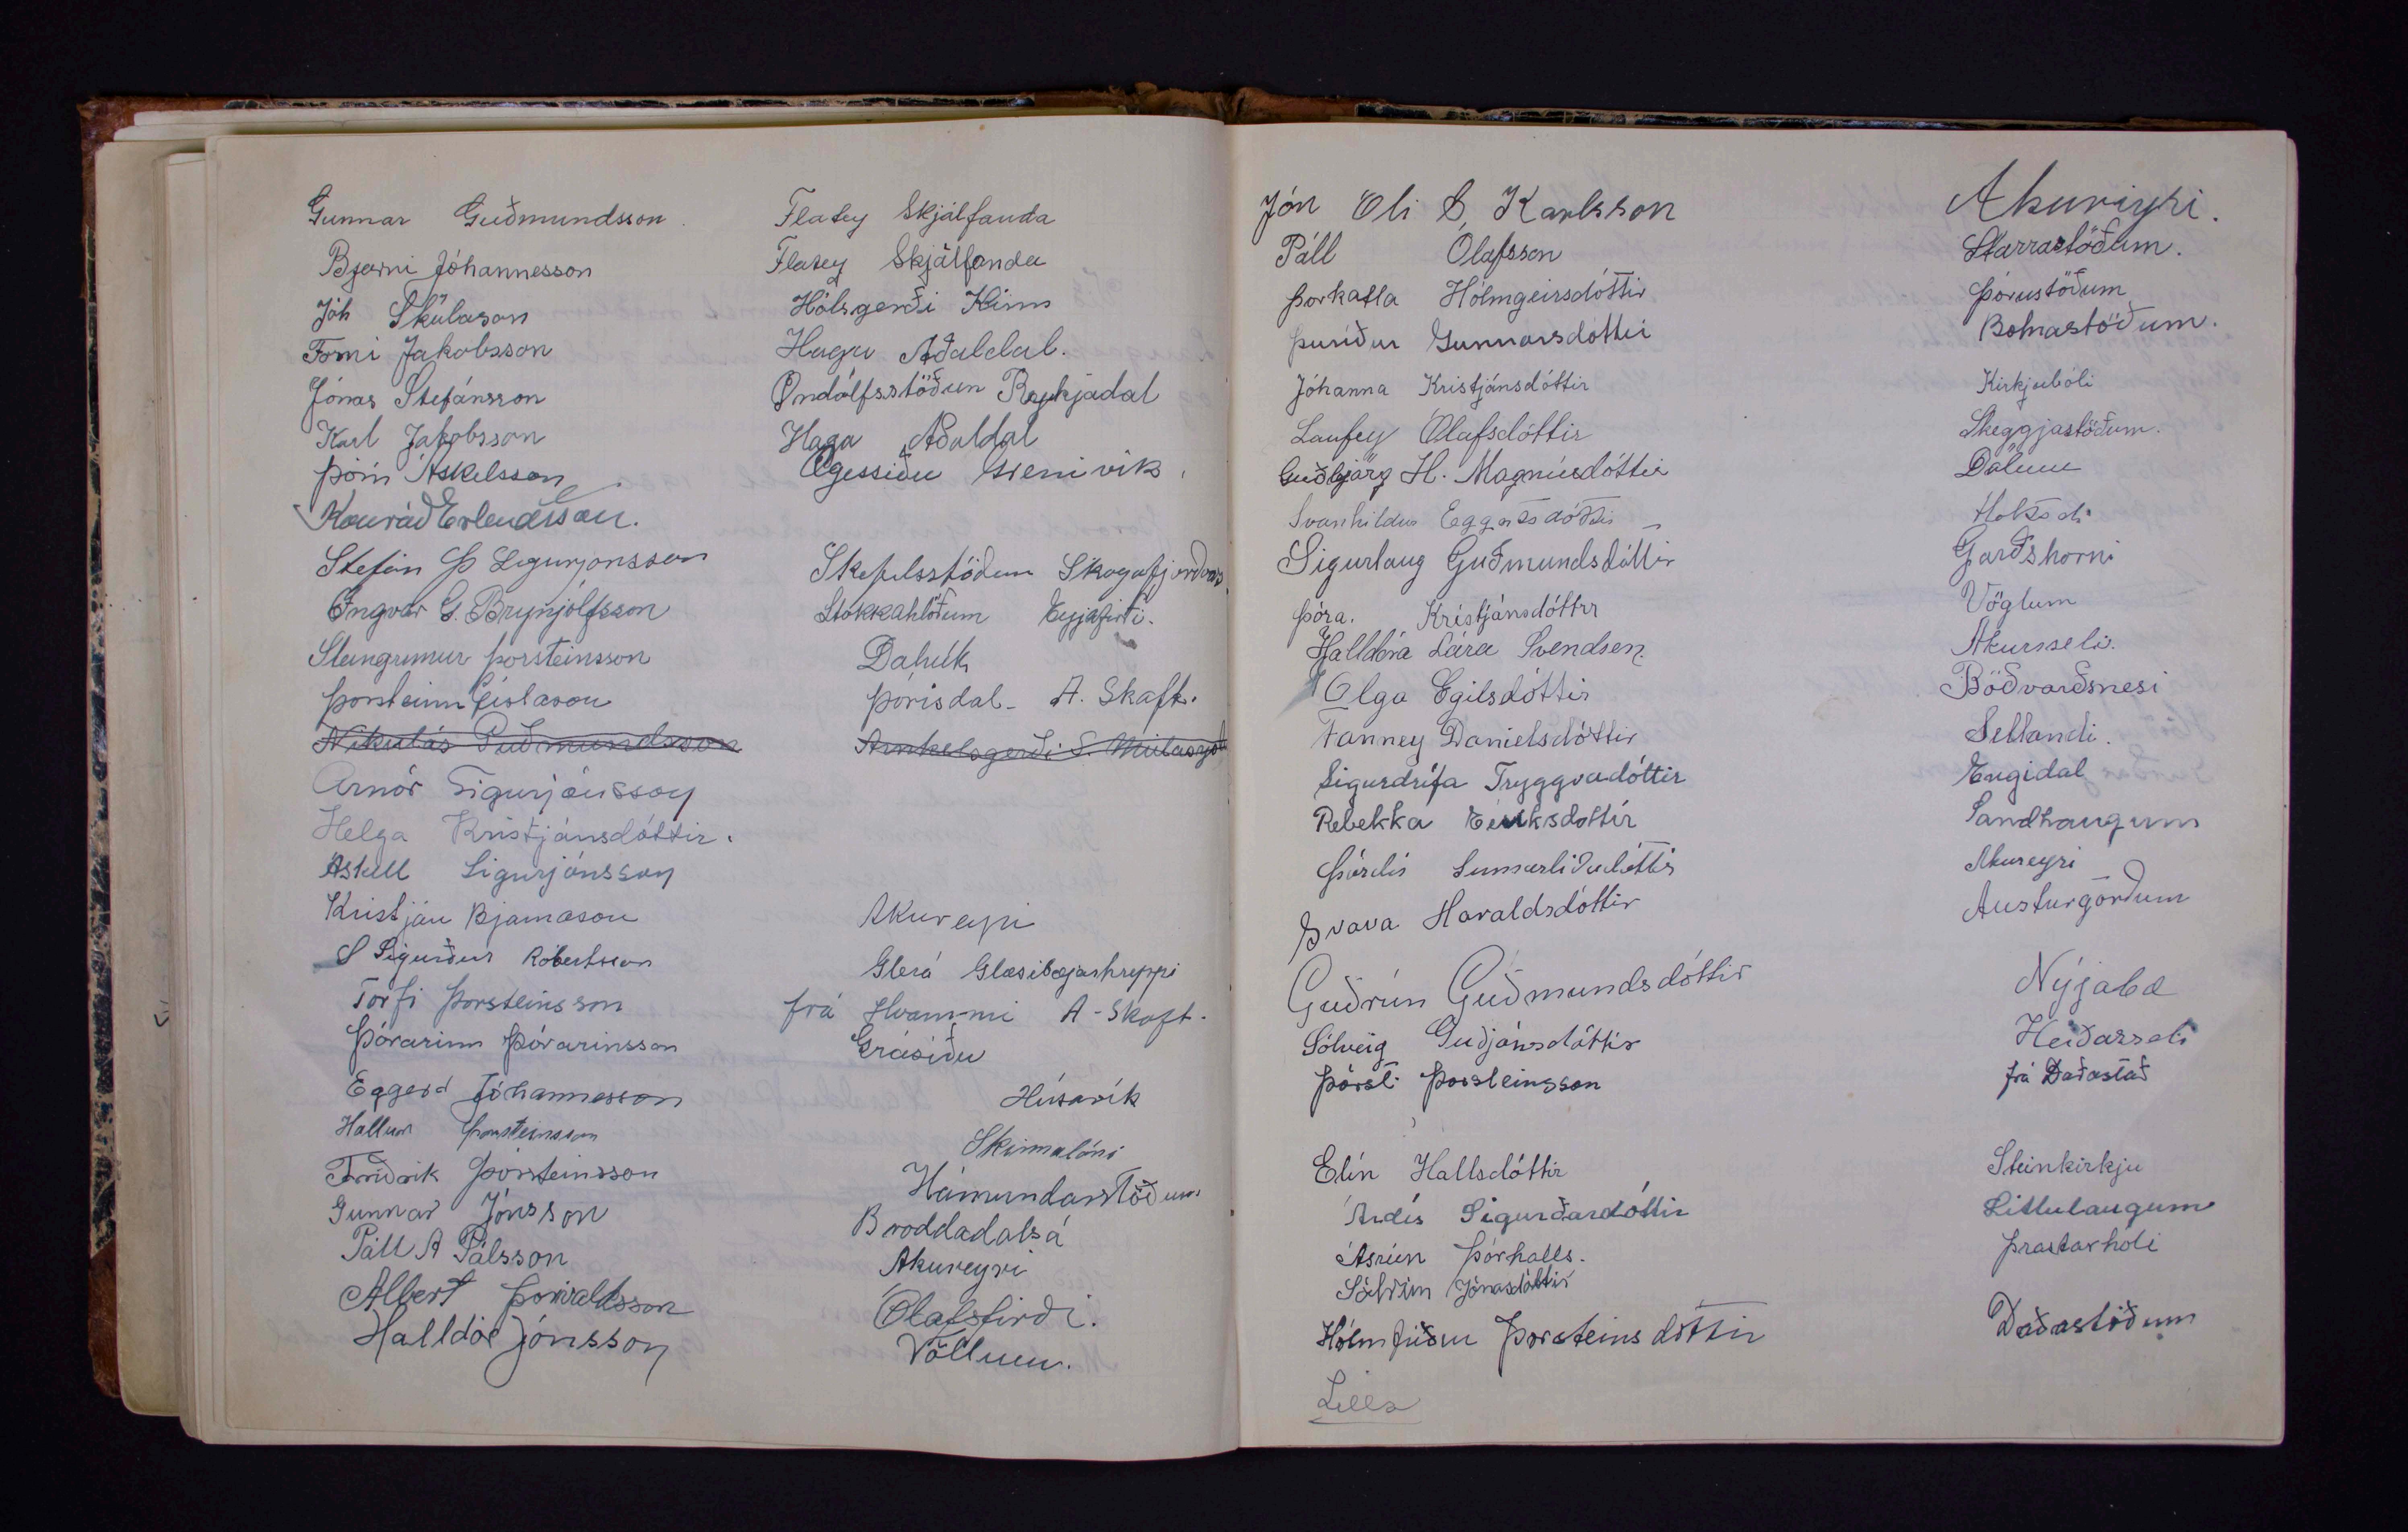 Gunnar Guðmundsson. Flatey Skjálfanda
Bjarni Jóhannesson Flatey Skjálfanda
Jóh Skúlason Hólsgerði Kinn
Forni Jakobsson Haga Aðaldal.
Jónas Stefánsson Öndólfsstöðum Reykjadal
Karl Jakobsson Haga Aðaldal
Þórir Áskelsson Ægissiðu Grenivík.
Konráð Erlendsson.
Stefán Þ Sigurjónsson Skefilsstöðum Skagafjarðar
Ingvar G. Brynjólfsson Stokkahlöðum Eyjafirði.
Steingrímur Þorsteinsson Dalvík
Þorsteinn Gíslason Þórisdal - A. Skaft.
Nikulás Guðmundsson Arnkelsgerði S. Múlasýslu
Arnór Sigurjónsson
Helga Kristjánsdóttir.
Áskell Sigurjónsson
Kristján Bjarnason Akureyri
S Sigurður Róbertsson Glerá Glæsibæjarhreppi
Torfi Þorsteinsson frá Hvammi A-Skaft.
Þórarinn Þórarinsson Grásiðu
Eggert Jóhannesson Húsavík
Hallur Þorsteinsson Skinnalóni
Friðrik Þorsteinsson Hámundarstöðum
Gunnar Jónsson Broddadalsá
Páll A Pálsson Akureyri
Albert Þorvaldsson Ólafsfirði.
Halldór Jónsson Völlum.
Jón Óli S, Karlsson Akureyri.
Páll Ólafsson Starrastöðum.
Þorkatla Hólmgeirsdóttir Þórustöðum
Þuríður Gunnarsdóttir Botnastöðum.
Jóhanna Kristjánsdóttir Kirkjubóli
Laufey Ólafsdóttir Skeggjastöðum.
Guðbjörg H. Magnúsdóttir Dölum
Svanhildur Eggertsdóttir Holtseli
Sigurlaug Guðmundsdóttir Garðshorni
Þóra. Kristjánsdóttir Vöglum
Halldóra Lára Svendsen. Akurseli.
Olga Egilsdóttir Böðvarðsnesi
Fanney Danielsdóttir Sellandi.
Sigurdrífa Tryggvadóttir Engidal
Rebekka Eiríksdóttir Sandhaugum
Þórdís Sumarliðadóttir Akureyri
Svava Haraldsdóttir Austurgörðum
Guðrún Guðmundsdóttir Nýjabæ
Sólveig Guðjónsdóttir Heiðarseli
Þórst. Þorsteinsson frá Daðastað
Elín Hallsdóttir Steinkirkju
Árdís Sigurðardóttir Litlulaugum
Ásrún Þórhalls. Þrastarhóli
Sólrún Jónasdóttir
Hólmfríður Þorsteinsdóttir Daðastöðum
Lilla